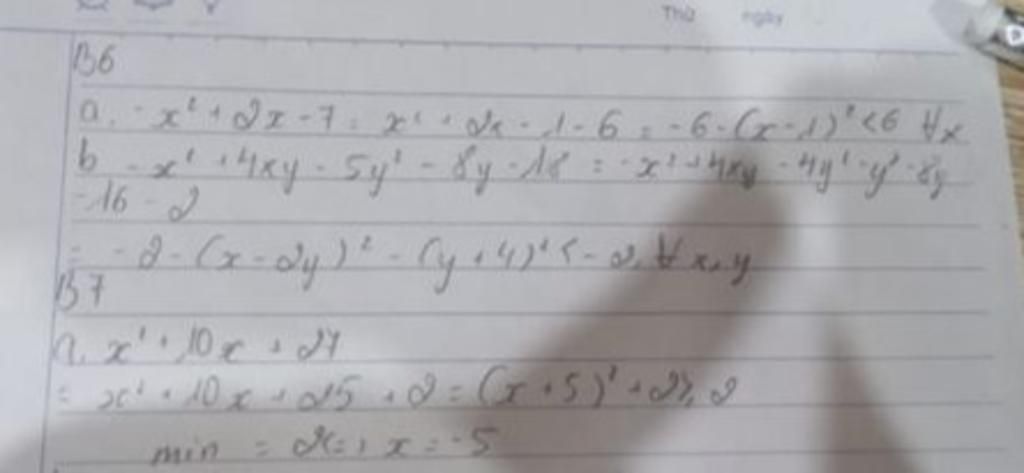 Thứ ngày
B6
a. -x² + 2x - 7 = x² + 2x - 1 - 6 = -6 - (x - 1)² < 6 ∀x
b -x² + 4xy - 5y² - 8y - 18 = -x² + 4xy - 4y² - y² - 8y
-16 - 2
= -2 - (x - 2y)² - (y + 4)² < -2, ∀x,y
B7
a. x² + 10x + 27
= x² + 10x + 25 + 2 = (x + 5)² + 2 ≥ 2
min = 2 <=> x = -5